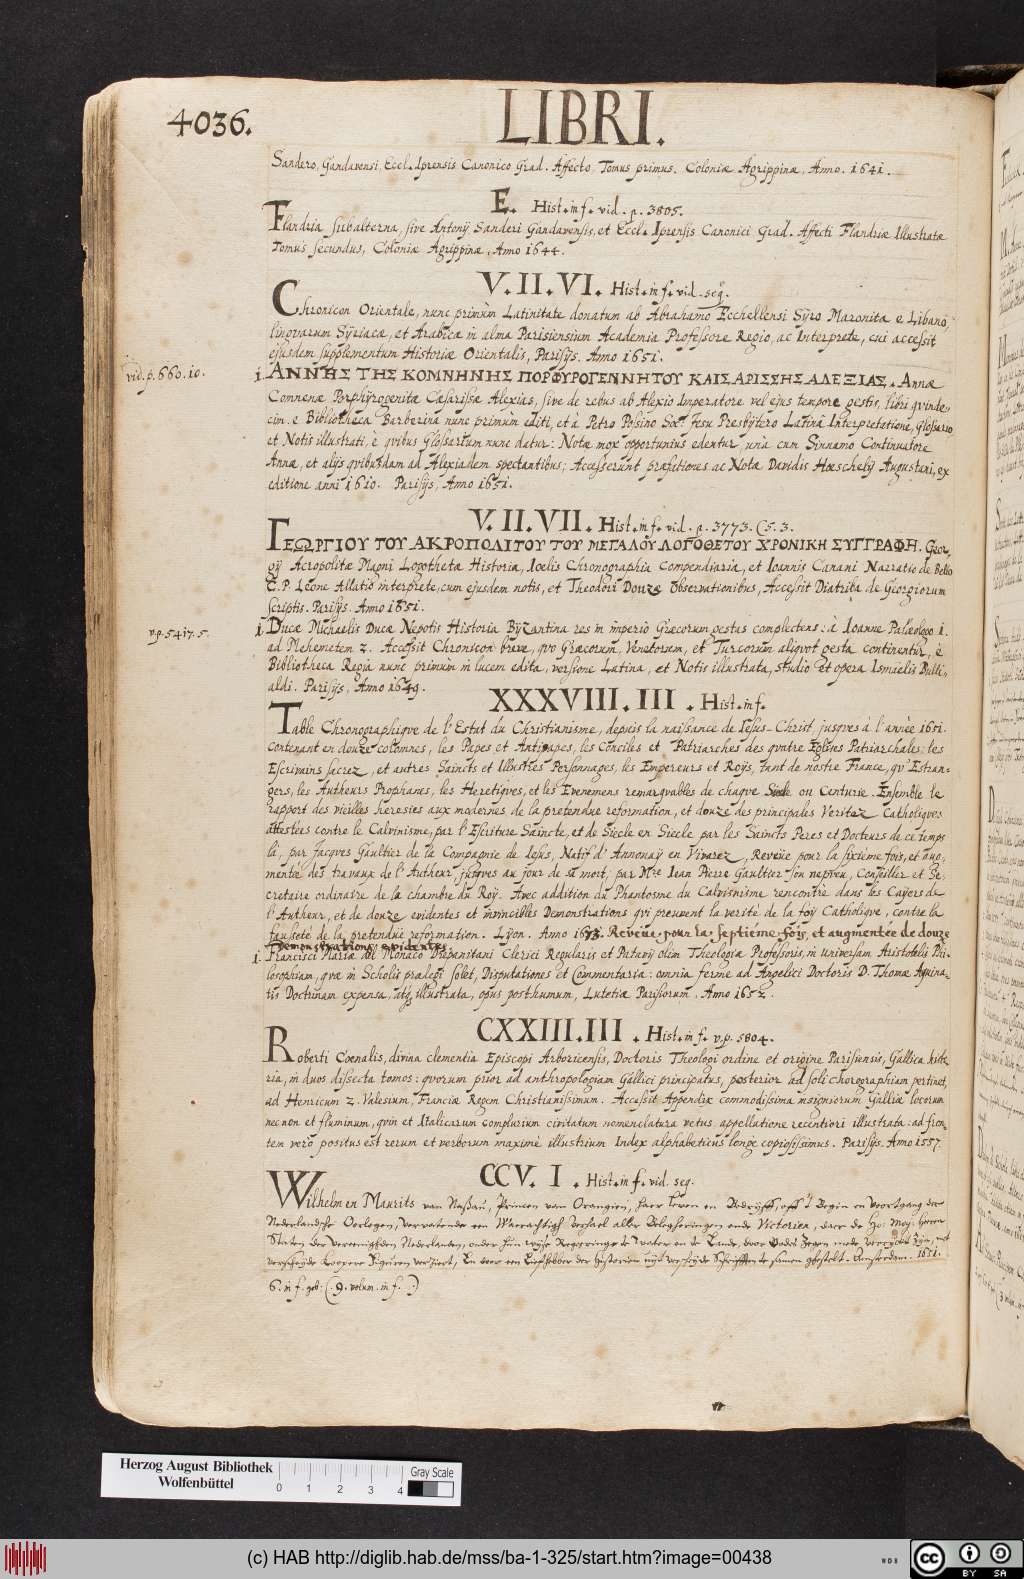 4036.
LIBRI.
Sandero, Gandavensi, Eccl. Iprensis Canonico Grad. Affecto, Tomus primus. Coloniæ Agrippinæ, Anno. 1641.
E. Hist. in f. vid. p. 3805.
Flandria subalterna, sive Antonÿ Sanderi Gandavensis, et Eccl. Iprensis Canonici Grad. Affecti Flandriæ Illustratæ
Tomus secundus, Coloniæ Agrippinæ, Anno 1644.
V. II. VI. Hist. in f. vid. seq.
Chronicon Orientale, nunc primùm Latinitate donatum ab Abrahamo Ecchellensi Sÿro Maronita e Libano,
linguarum Sÿriacæ, et Arabicæ in alma Parisiensium Academia Professore Regio, ac Interprete, cui accessit
ejusdem supplementum Historiæ Orientalis, Parisÿs. Anno 1651.
vid. p. 660. 10.
1. ΑΝΝΗΣ ΤΗΣ ΚΟΜΝΗΝΗΣ ΠΟΡΦΥΡΟΓΕΝΝΗΤΟΥ ΚΑΙΣΑΡΙΣΣΗΣ ΑΛΕΞΙΑΣ. Annæ
Comnenæ Porphÿrogenitæ Cæsarissæ Alexias, sive de rebus ab Alexio Imperatore vel ejus tempore gestis, libri quinde-
cim. e Bibliotheca Barberina nunc primùm editi, et à Petro Possino Soc. Jesu Presbÿtero Latinâ Interpretatione, Glossario
et Notis illustrati, è quibus Glossarium nunc datur: Notæ mox opportuniùs edentur unà cum Sinnamo Continuatore
Annæ, et alÿs quibusdam ad Alexiadem spectantibus; Accesserunt præfationes ac Notæ Davidis Hœschelÿ Augustani, ex
editione anni 1610. Parisÿs, Anno 1651.
V. II. VII. Hist. in f. vid. p. 3773. (5. 3.
ΓΕΩΡΓΙΟΥ ΤΟΥ ΑΚΡΟΠΟΛΙΤΟΥ ΤΟΥ ΜΕΓΑΛΟΥ ΛΟΓΟΘΕΤΟΥ ΧΡΟΝΙΚΗ ΣΥΓΓΡΑΦΗ. Geor-
gÿ Acropolitæ Magni Logothetæ Historia, Ioelis Chronographia Compendiaria, et Ioannis Canani Narratio de Bello
C. P. Leone Allatio interprete, cum ejusdem notis, et Theodori Douzæ Observationibus, Accessit Diatriba de Georgiorum
scriptis. Parisÿs. Anno 1651.
v. p. 5417. 5.
1. Ducæ Michaelis Ducæ Nepotis Historia Bÿzantina res in imperio Græcorum gestas complectens: à Ioanne Palæologo 1.
ad Mehemetem 2. Accessit Chronicon breve, quo Græcorum, Venetorum, et Turcorum aliquot gesta continentur, è
Bibliotheca Regia nunc primùm in lucem edita, versione Latina, et Notis illustrata, studio et opera Ismaëlis Bulli-
aldi. Parisÿs, Anno 1649.
XXXVIII. III. Hist. in f.
Table Chronographique de l'Estat du Christianisme, depuis la naissance de Jesus-Christ, jusques à l'année 1651.
contenant en douze colomnes, les Papes et Antipapes, les Conciles et Patriarches des quatre Eglises Patriarchales: les
Escrivains sacrez, et autres Saincts et Illustres Personnages, les Empereurs et Roÿs, tant de nostre France, qu'Estran-
gers, les Autheurs Prophanes, les Heretiques, et les Evenemens remarquables de chaque Siècle ou Centurie. Ensemble le
rapport des vieilles heresies aux modernes de la pretendue reformation, et douze des principales Veritez Catholiques
attestées contre le Calvinisme, par l'Escriture Saincte, et de Siècle en Siècle par les Saincts Peres et Docteurs de ce temps
là, par Jacques Gaultier de la Compagnie de Iesus, Natif d'Annonaÿ en Vivarez, Reveüe pour la sixième fois, et aug-
mentée des travaux de l'Autheur, jusques au jour de sa mort, par Mre Iean Pierre Gaultier son nepveu, Conseiller et Se-
cretaire ordinaire de la chambre du Roÿ. Avec addition du Phantosme du Calvinisme rencontré dans les Caÿers de
l'Autheur, et de douze evidentes et invincibles Demonstrations qui preuvent la verité de la foÿ Catholique, contre la
fausseté de la pretendue reformation. Lyon. Anno 1673. Reveue pour la septieme fois, et augmentée de douze
Demonstrations evidentes
1. Francisci Mariæ del Monaco Drepanitani Clerici Regularis et Patavÿ olim Theologiæ Professoris, in universam Aristotelis Phi-
losophiam, quæ in Scholis prælegi solet, Disputationes et Commentaria: omnia fermè ad Angelici Doctoris D. Thomæ Aquina-
tis Doctrinam expensa, atq. illustrata, opus posthumum, Lutetiæ Parisiorum, Anno 1652.
CXXIII. III. Hist. in f. v. p. 5804.
Roberti Cœnalis, divina clementia Episcopi Arboricensis, Doctoris Theologi ordine et origine Parisiensis, Gallica histo-
ria, in duos dissecta tomos: quorum prior ad anthropologiam Gallici principatus, posterior ad soli chorographiam pertinet,
ad Henricum 2. Valesium, Franciæ Regem Christianissimum. Accessit Appendix commodissima insigniorum Galliæ locorum
necnon et fluminum, quin et Italicarum complurium civitatum nomenclatura vetus, appellatione recentiori illustrata: ad fron-
tem verò positus est rerum et verborum maximè illustrium Index alphabeticus longè copiosissimus. Parisÿs. Anno 1557.
CCV. I. Hist. in f. vid. seq.
Wilhelm en Maurits van Naßau, Princen van Orangien, haer Leven en Bedrÿff, off 't Begin en Voortgang der
Nederlandsche Oorlogen, vervatende een Waerachtigh Verhael aller Belegheringen ende Victorien, daer de Ho: Mog: Heeren
Staten der Vereenighden Nederlanden, onder hun wijse Regeeringe te Water en te Lande, door Godes Zegen mede vereydelt zijn, met
verscheyde koopere Figuren verciert, En door een Liefhebber der Historien uyt verscheyde Schrifften te samen ghestelt. Amsterdam. 1651.
6. in f. geb: (9. volum. in f.)
Herzog August Bibliothek
Wolfenbüttel
0 1 2 3 4
Gray Scale
(c) HAB http://diglib.hab.de/mss/ba-1-325/start.htm?image=00438
WDB
CC BY SA